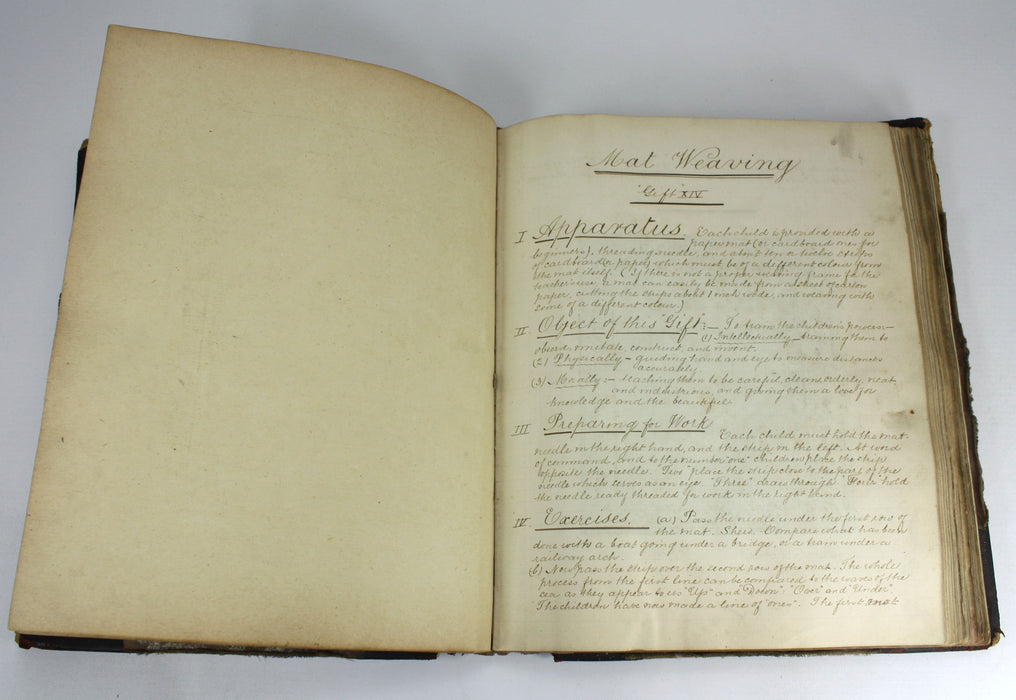 Mat Weaving
"Gift" XIV.
I Apparatus. Each child is provided with a
paper mat (or cardboard ones for
beginners), threading needle, and about ten or twelve strips
of cardboard (or paper) which must be of a different colour from
the mat itself. (If there is not a proper weaving frame for the
teacher's use, a mat can easily be made from a sheet of carton
paper, cutting the strips about 1 inch wide, and weaving with
some of a different colour.)
II Object of this "Gift":— To train the children's powers:—
(1) Intellectually—training them to
observe, imitate, construct, and invent.
(2) Physically— guiding hand and eye to measure distances
accurately.
(3) Morally:— teaching them to be careful, clean, orderly, neat,
and industrious, and giving them a love for
knowledge and the beautiful.
III Preparing for Work
Each child must hold the mat-
needle in the right hand, and the strip in the left. At word
of command, and to the number "one" children place the strip
opposite the needle. "Two" place the strip close to the part of the
needle which serves as an eye. "Three" draw through. "Four" hold
the needle ready threaded for work in the right hand.
IV Exercises. (a) Pass the needle under the first row of
the mat. Show. Compare what has been
done with a boat going under a bridge, or a tram under a
railway arch.
(b) Now pass the strip over the second row of the mat. The whole
process from the first line can be compared to the waves of the
sea as they appear to us "Up" and "Down". "Over" and "Under".
The children have now made a line of "ones". The first mat